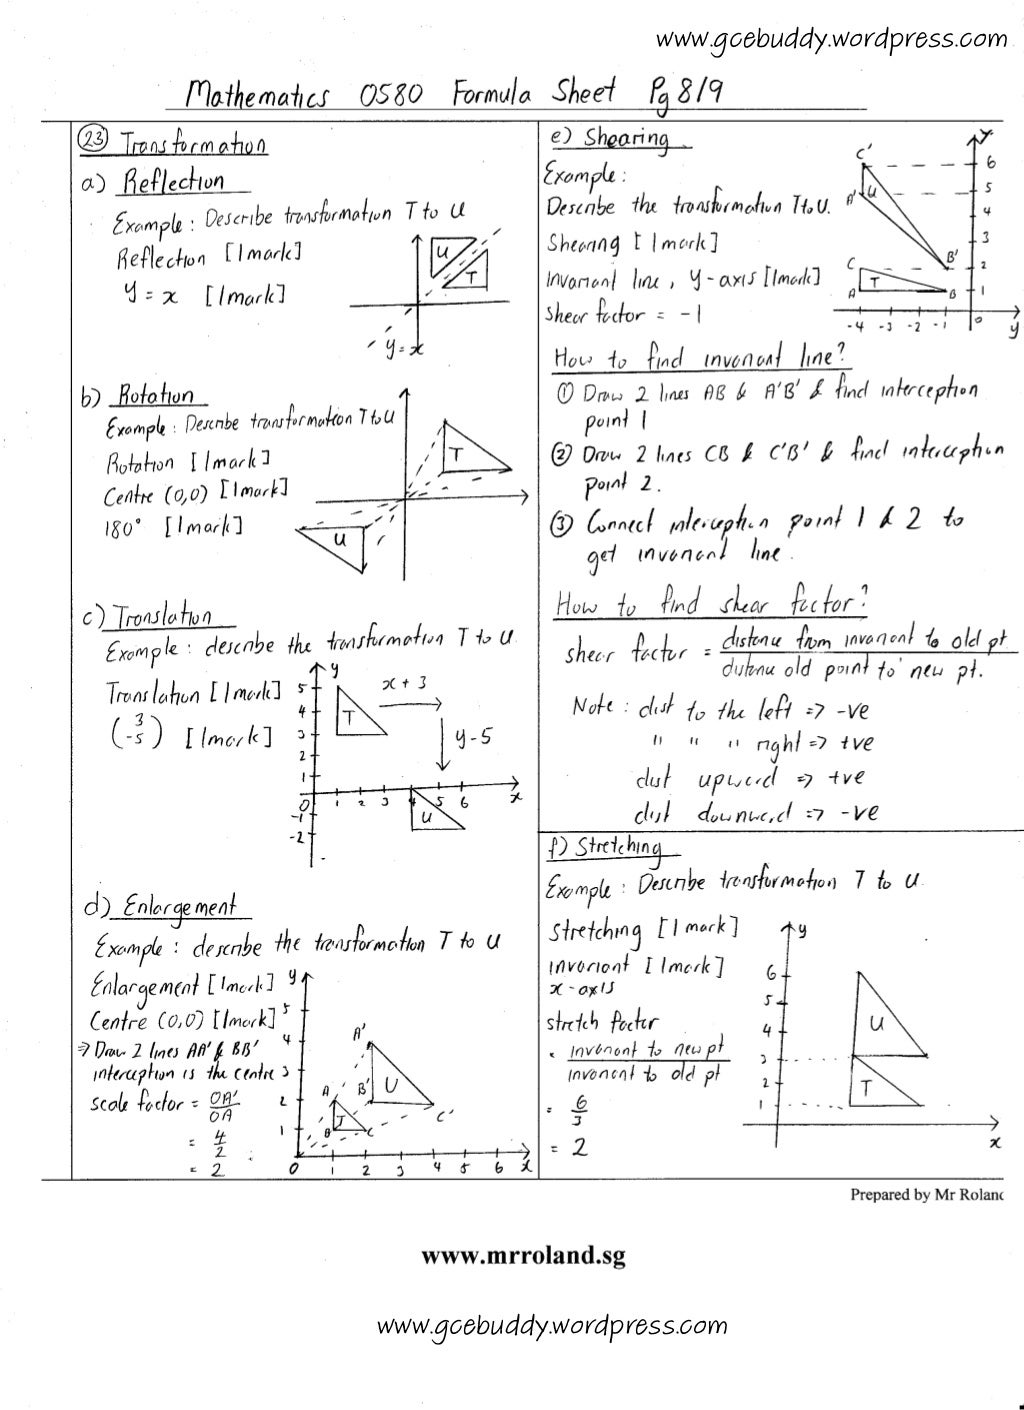 www.gcebuddy.wordpress.com
Mathematics 0580 Formula Sheet Pg 8/9
23 Transformation
a) Reflection
Example: Describe transformation T to U
Reflection [1mark]
y = x [1mark]
U
T
y=x
b) Rotation
Example: Describe transformation T to U
Rotation [1mark]
Centre (0,0) [1mark]
180° [1mark]
T
U
c) Translation
Example: describe the transformation T to U
Translation [1mark]
(3
-5) [1mark]
y
5
4
3
2
1
0
-1
-2
T
x + 3
y - 5
1 2 3 4 5 6 x
U
d) Enlargement
Example: describe the transformation T to U
Enlargement [1mark]
Centre (0,0) [1mark]
⇒ Draw 2 lines AA' & BB'
interception is the centre
scale factor = OA'
OA
= 4
2
= 2
y
5
4
3
2
1
A'
A
B'
U
C'
T
B
C
0 1 2 3 4 5 6 x
e) Shearing
Example:
Describe the transformation T to U.
Shearing [1mark]
Invariant line, y-axis [1mark]
shear factor = -1
y
C'
6
A'
U
5
4
3
B'
2
C
T
A
B
1
-4 -3 -2 -1 0
y
How to find invariant line?
① Draw 2 lines AB & A'B' & find interception
point 1
② Draw 2 lines CB & C'B' & find interception
point 2.
③ Connect interception point 1 & 2 to
get invariant line.
How to find shear factor?
shear factor = distance from invariant to old pt
distance old point to new pt.
Note: dist to the left ⇒ -ve
" " " right ⇒ +ve
dist upward ⇒ +ve
dist downward ⇒ -ve
f) Stretching
Example: Describe transformation T to U
Stretching [1mark]
invariant [1mark]
x-axis
stretch factor
= invariant to new pt
invariant to old pt
= 6
3
= 2
y
6
5
4
3
2
1
U
T
x
Prepared by Mr Rolanc
www.mrroland.sg
www.gcebuddy.wordpress.com